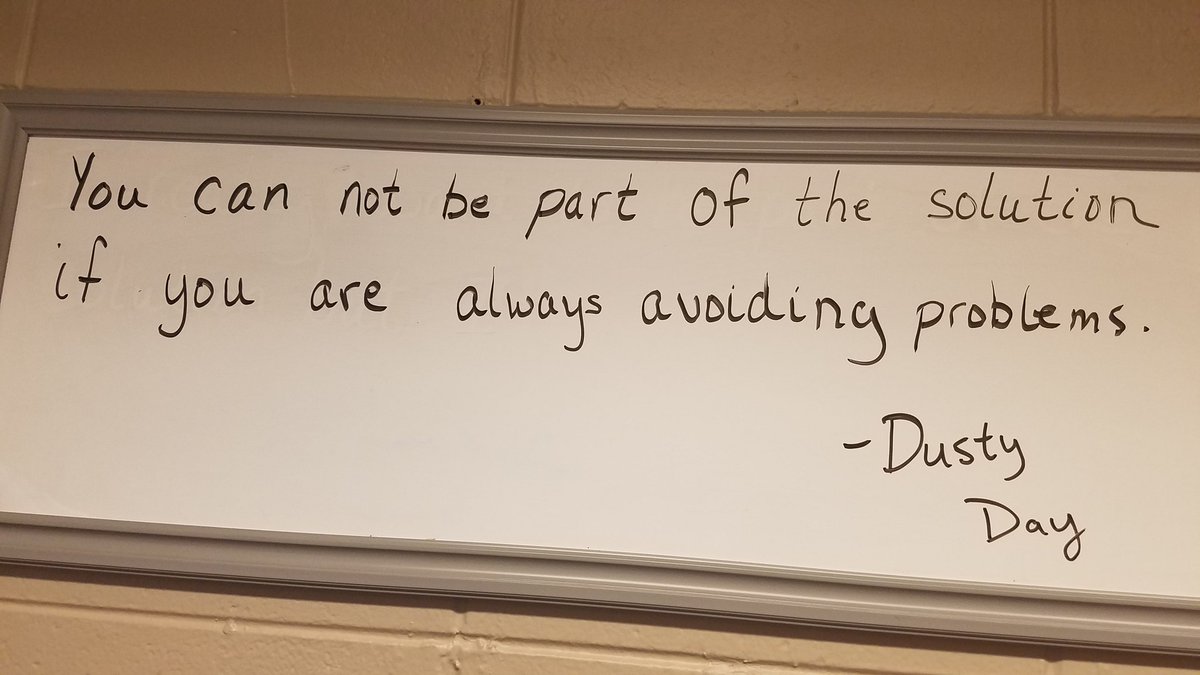 You can not be part of the solution
if you are always avoiding problems.
-Dusty
Day